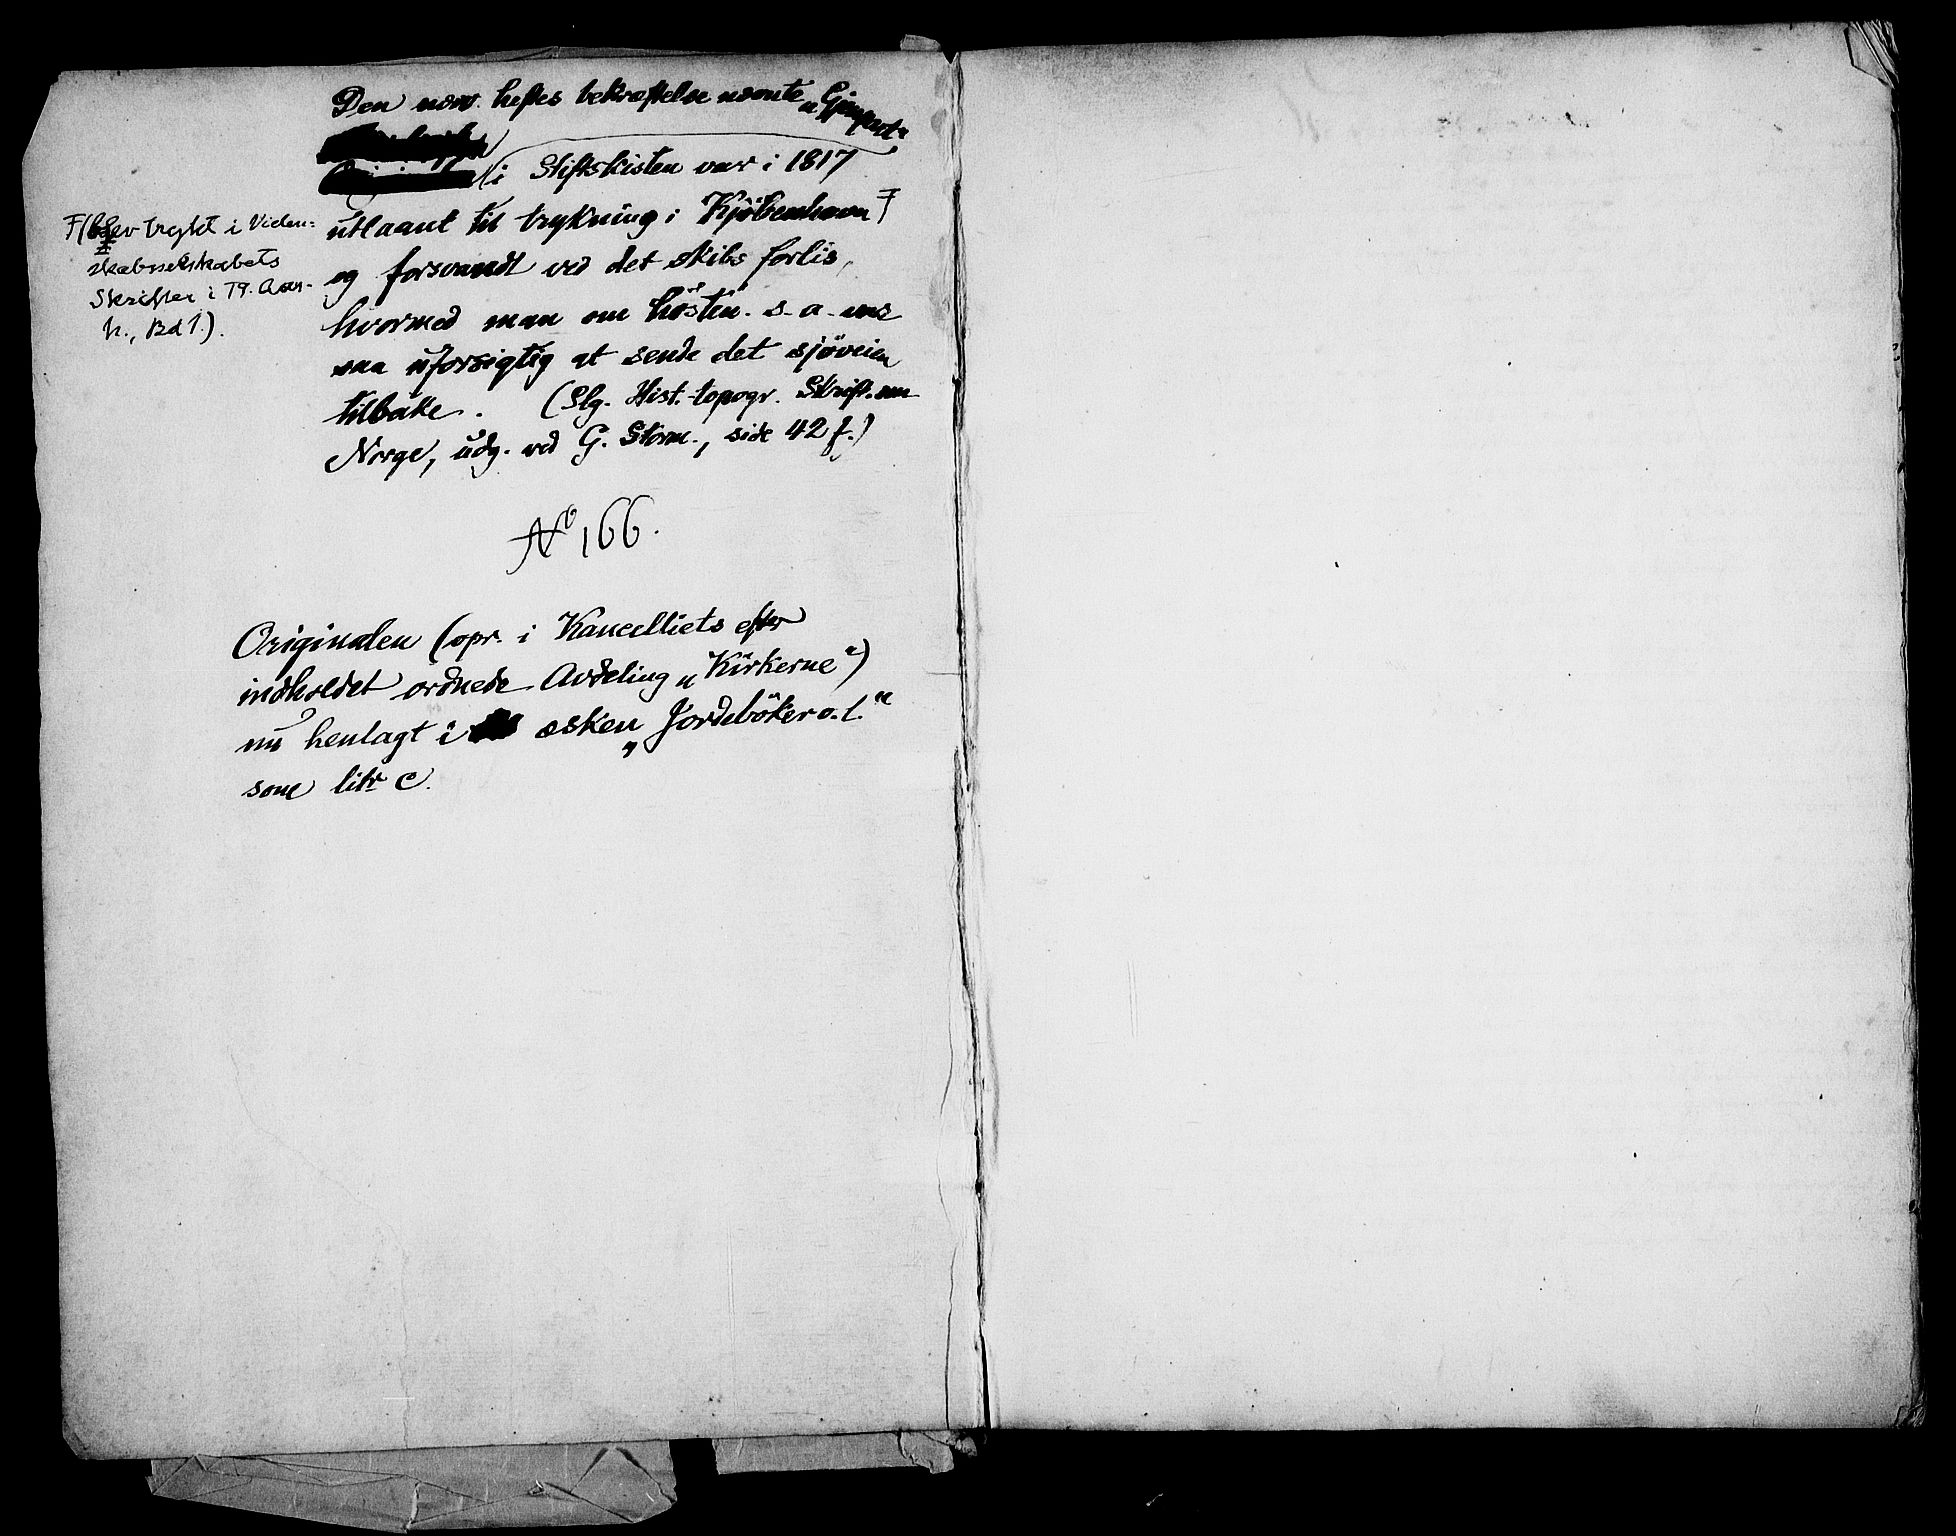 Den nærv. heftes bekræftelse nævnte „Gjenpart“
i Stiftskisten var i 1817
utlaant til trykning i Kjöbenhavn F
og forsvandt ved det skibs forlis,
hvormed man om hösten s. a. var
saa uforsigtig at sende det sjöveien
tilbake. (Slg. Hist.-topogr. Skrift. om
Norge, udg. ved G. Storm., side 42 f.)
F/blev trykt i Viden-
skabsselskabets
Skrifter i 19. Aar-
h., Bd 1.).
No 166.
Originalen (opr. i Kancelliets efter
indholdet ordnede Avdeling „Kirkerne“)
nu henlagt i æsken „Jordeböker o. l.“
som litr C.